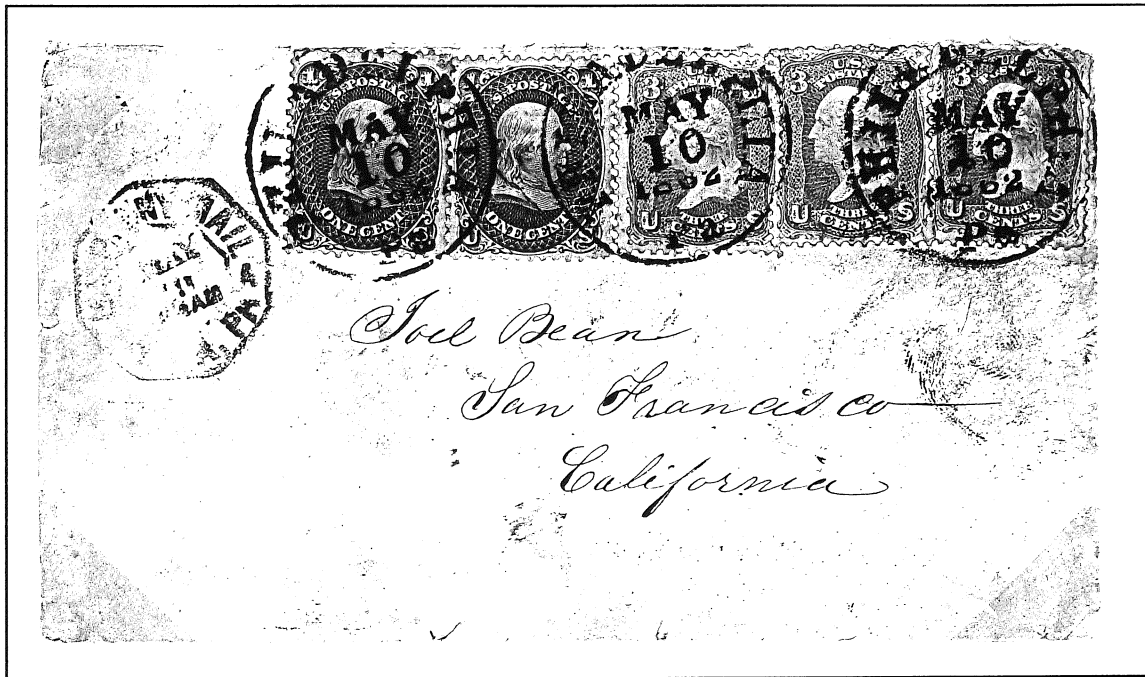 U.S. POSTAGE
ONE CENT
U S
U.S. POSTAGE
ONE CENT
U S
3 U.S. 3
POSTAGE
THREE
CENTS
U S
3 U.S.
POSTAGE
THREE
CENTS
U S
3 U.S.
THREE
CENTS
U S
PHILADELPHIA
MAY
10
1862
Pa
MAY
10
1862
Pa
PHILADELPHIA
MAY
10
1862
Pa
MAIL
MAY
11
AM
PHILA
Joel Bean
San Francisco
California